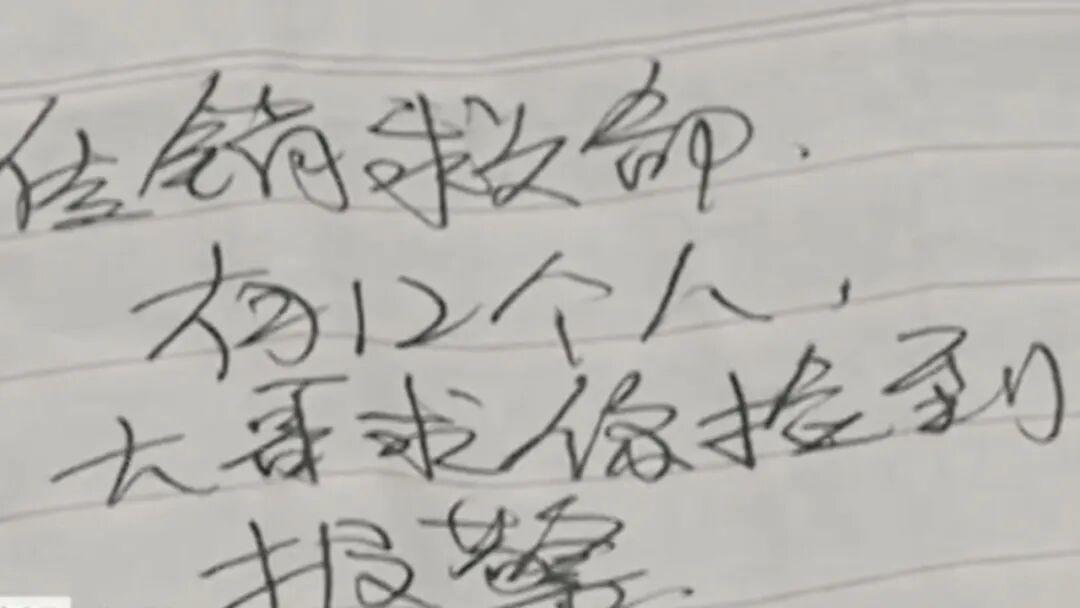 传销求救命.
有12个人.
大哥求你捡到
报警.